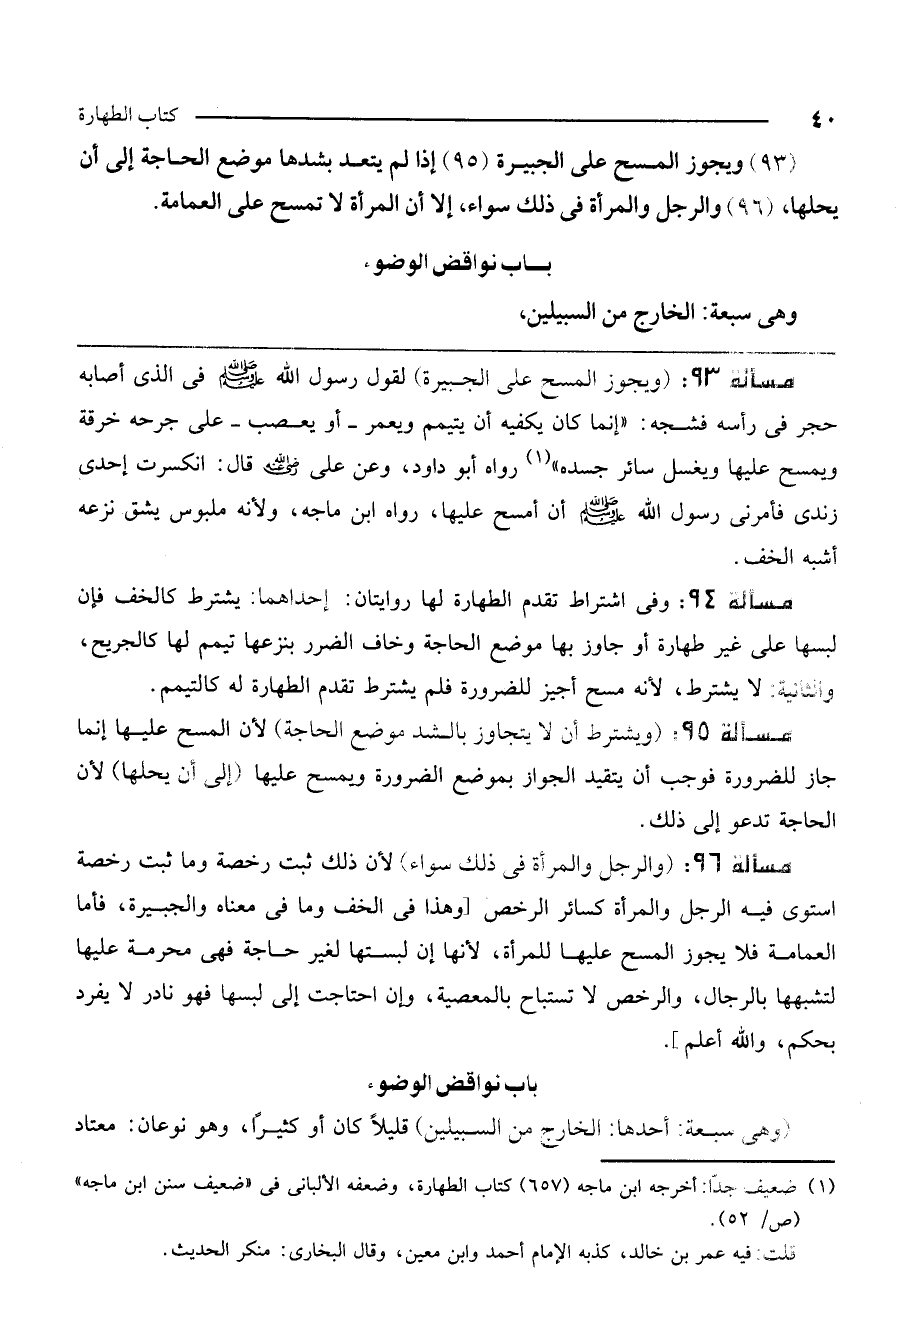 ٤٠ كتاب الطهارة
(٩٣) ويجوز المسح على الجبيرة (٩٥) إذا لم يتعد بشدها موضع الحاجة إلى أن
يحلها، (٩٦) والرجل والمرأة فى ذلك سواء، إلا أن المرأة لا تمسح على العمامة.
بـاب نواقض الوضوء
وهى سبعة: الخارج من السبيلين،
مسألة ٩٣: (ويجوز المسح على الجبيرة) لقول رسول الله ﷺ فى الذى أصابه
حجر فى رأسه فشجه: «إنما كان يكفيه أن يتيمم ويعمر ـ أو يعصب ـ على جرحه خرقة
ويمسح عليها ويغسل سائر جسده»(١) رواه أبو داود، وعن على رضي الله عنه قال: انكسرت إحدى
زندى فأمرنى رسول الله ﷺ أن أمسح عليها، رواه ابن ماجه، ولأنه ملبوس يشق نزعه
أشبه الخف.
مسألة ٩٤: وفى اشتراط تقدم الطهارة لها روايتان: إحداهما: يشترط كالخف فإن
لبسها على غير طهارة أو جاوز بها موضع الحاجة وخاف الضرر بنزعها تيمم لها كالجريح،
والثانية: لا يشترط، لأنه مسح أجيز للضرورة فلم يشترط تقدم الطهارة له كالتيمم.
مسألة ٩٥: (ويشترط أن لا يتجاوز بالشد موضع الحاجة) لأن المسح عليها إنما
جاز للضرورة فوجب أن يتقيد الجواز بموضع الضرورة ويمسح عليها (إلى أن يحلها) لأن
الحاجة تدعو إلى ذلك.
مسألة ٩٦: (والرجل والمرأة فى ذلك سواء) لأن ذلك ثبت رخصة وما ثبت رخصة
استوى فيه الرجل والمرأة كسائر الرخص [وهذا فى الخف وما فى معناه والجبيرة، فأما
العمامة فلا يجوز المسح عليها للمرأة، لأنها إن لبستها لغير حاجة فهى محرمة عليها
لتشبهها بالرجال، والرخص لا تستباح بالمعصية، وإن احتاجت إلى لبسها فهو نادر لا يفرد
بحكم، والله أعلم].
باب نواقض الوضوء
(وهى سبعة: أحدها: الخارج من السبيلين) قليلاً كان أو كثيرًا، وهو نوعان: معتاد
(١) ضعيف جدًا: أخرجه ابن ماجه (٦٥٧) كتاب الطهارة، وضعفه الألبانى فى «ضعيف سنن ابن ماجه»
(ص/ ٥٢).
قلت: فيه عمر بن خالد، كذبه الإمام أحمد وابن معين، وقال البخارى: منكر الحديث.